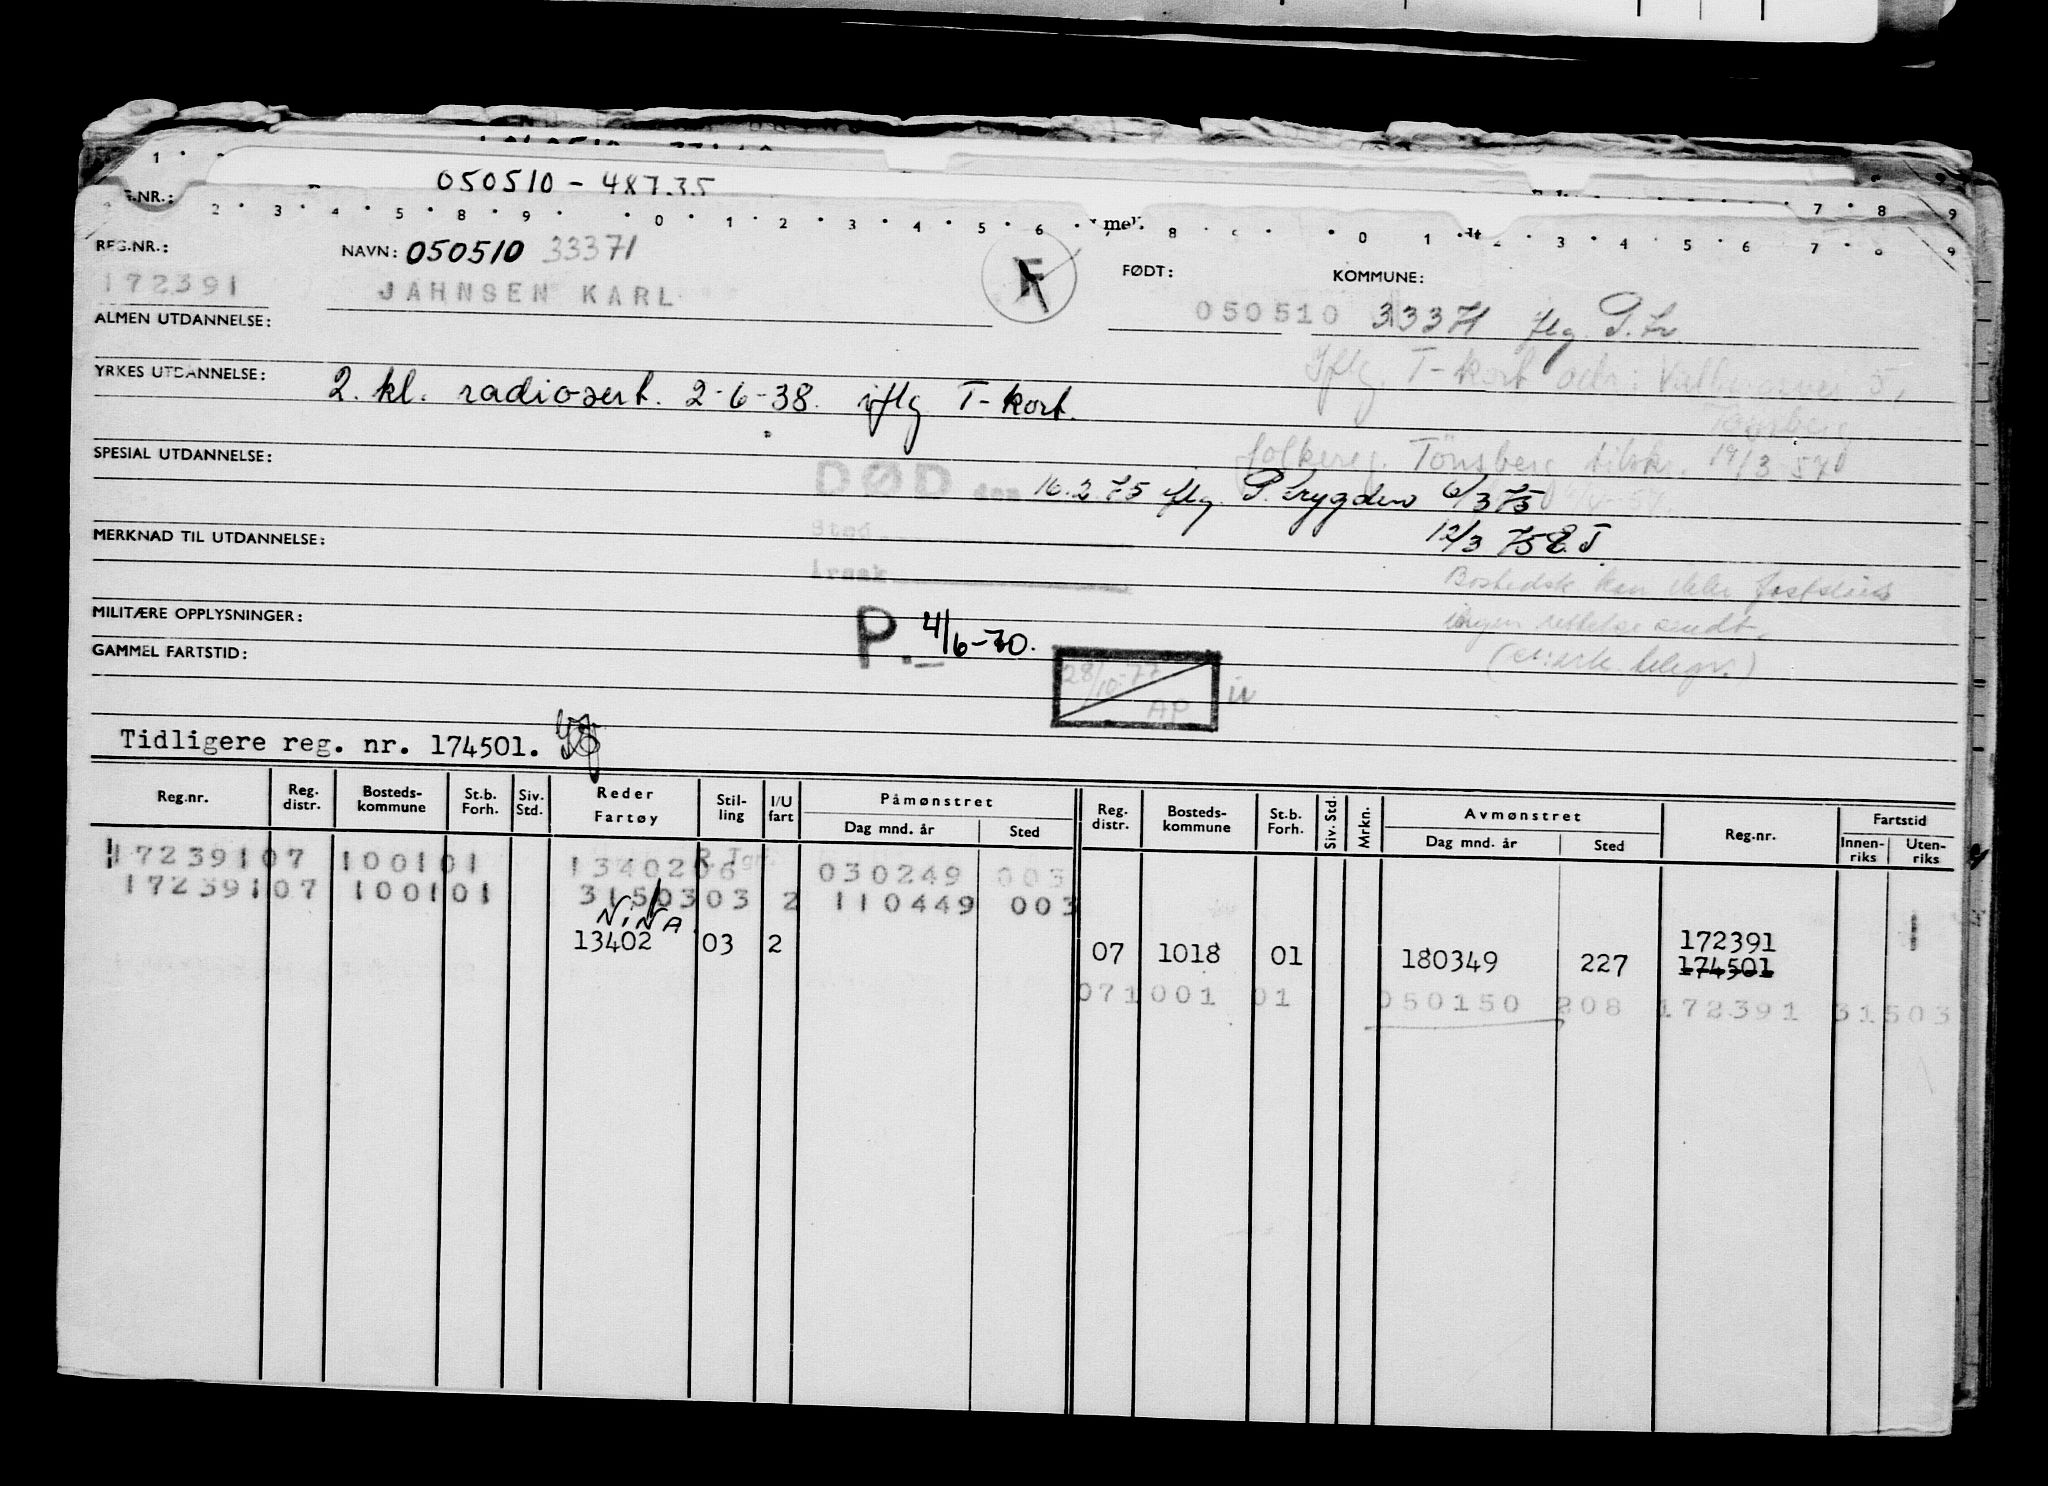 050510 - 487.35
REG.NR.:
NAVN: 050510 33371
FØDT:
KOMMUNE:
172391
JAHNSEN KARL
F
050510
33371 iflg. P.tr
ALMEN UTDANNELSE:
Iflg. T-kort adr: 5,
Tønsberg
YRKES UTDANNELSE: 2. kl. radiosert. 2-6-38. iflg T-kort.
folkereg. Tönsberg tilskr. 19/3 57
SPESIAL UTDANNELSE:
DØD den 16.2.75 iflg. P.trygden 6/3 75
Sted
12/3 75 E.T
MERKNAD TIL UTDANNELSE:
Årsak
Bostedsk kan ikke fastslåes
ingen rettelse sendt.
MILITÆRE OPPLYSNINGER:
P. 4/6-70.
GAMMEL FARTSTID:
28/10-77
AP
Tidligere reg. nr. 174501.
Reg.nr. Reg. distr. Bosteds-kommune St.b. Forh. Siv. Std. Reder Fartøy Stil-ling I/U fart Påmønstret Dag mnd. år Sted Reg. distr. Bosteds-kommune St.b. Forh. Siv. Std. Mrkn. Avmønstret Dag mnd. år Sted Reg.nr. Fartstid Innen-riks Uten-riks
172391 07 1001 01 13402 06 030249 003
172391 07 1001 01 31503 03 2 110449 003
NiNA
13402 03 2 07 1018 01 180349 227 172391
174501
07 1001 01 050150 208 172391 31503